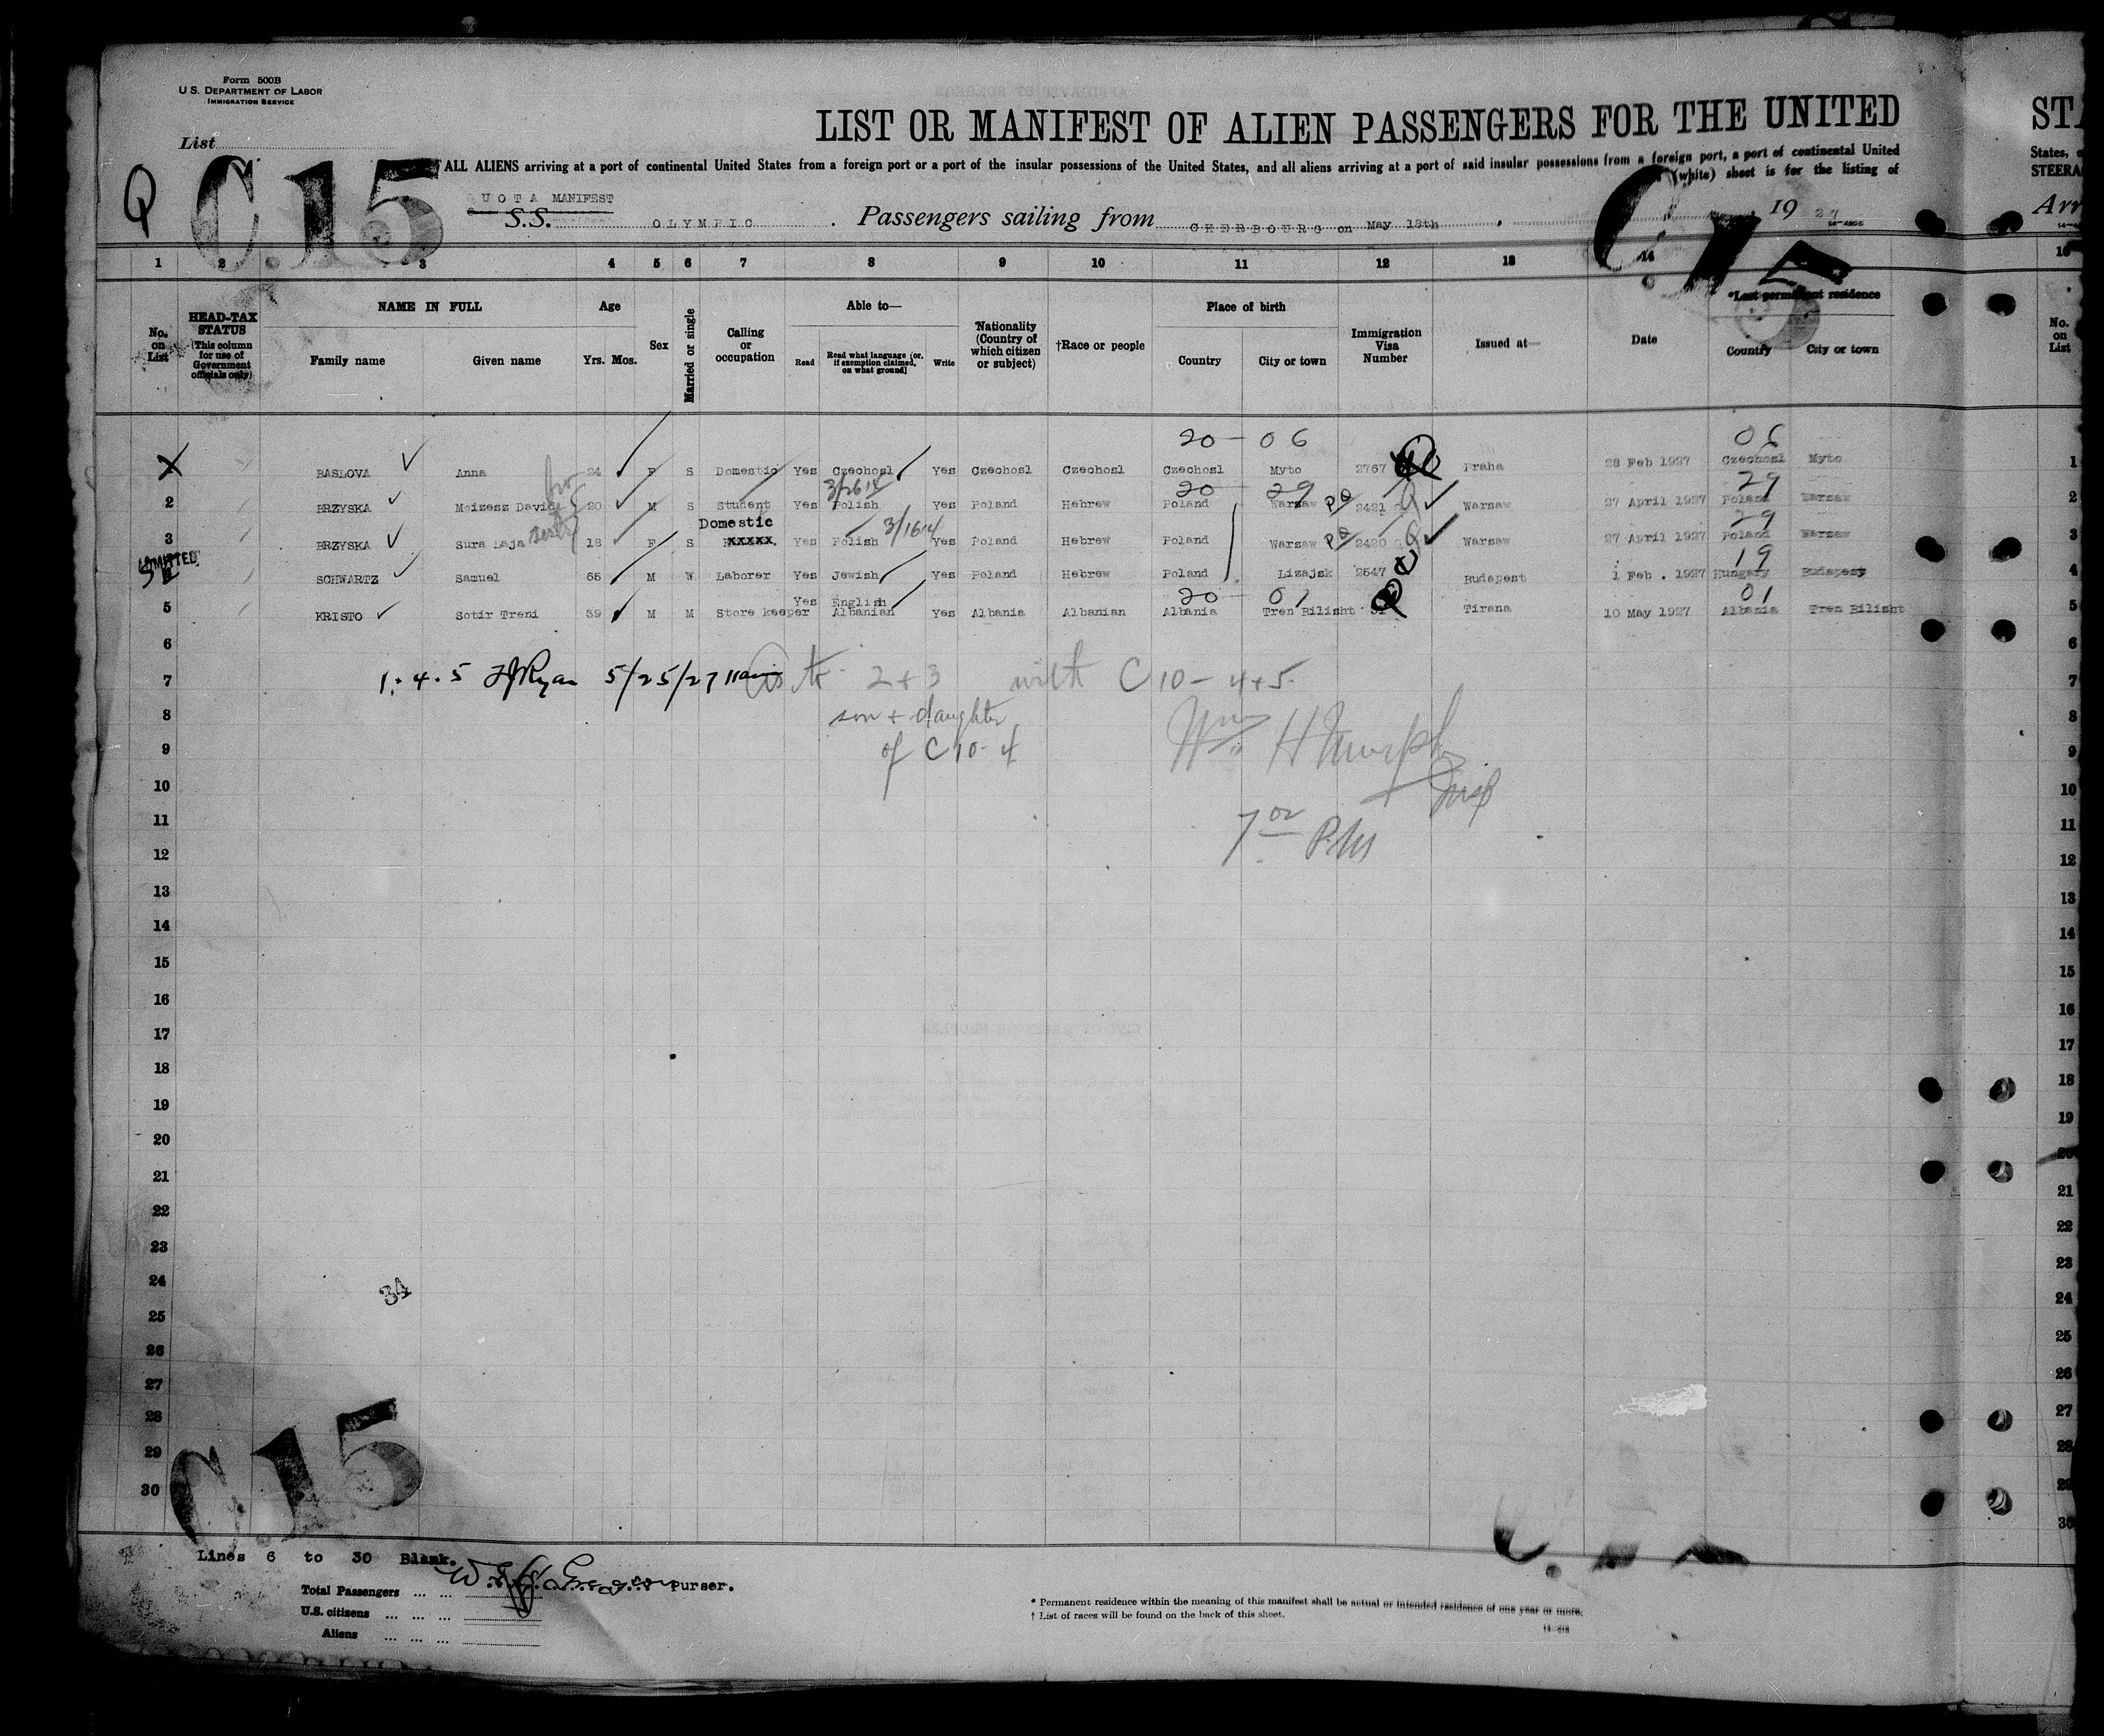 Form 500B
U.S. DEPARTMENT OF LABOR
IMMIGRATION SERVICE
List
LIST OR MANIFEST OF ALIEN PASSENGERS FOR THE UNITED
STA
Q C.15
ALL ALIENS arriving at a port of continental United States from a foreign port or a port of the insular possessions of the United States, and all aliens arriving at a port of said insular possessions from a foreign port, a port of continental United
States,
(white) sheet is for the listing of
STEERA
QUOTA MANIFEST
S.S. OLYMPIC. Passengers sailing from CHERBOURG on May 18th, 1927
Arr
C.15
1 2 3 4 5 6 7 8 9 10 11 12 13 14
No. on List
HEAD-TAX STATUS
(This column for use of Government officials only)
NAME IN FULL
Family name Given name
Age
Yrs. Mos.
Sex
Married or single
Calling or occupation
Able to—
Read
Read what language [or, if exemption claimed, on what ground]
Write
Nationality (Country of which citizen or subject)
†Race or people
Place of birth
Country City or town
Immigration Visa Number
Issued at—
Date
*Last permanent residence
Country City or town
No. on List
20 - 06 06
X BASLOVA Anna 24 F S Domestic Yes Czechosl Yes Czechosl Czechosl Czechosl Myto 2767 Praha 28 Feb 1927 Czechosl Myto 1
3/2614 20 - 29 29
2 BRZYSKA Moizesz Davids 20 M S Student Yes Polish Yes Poland Hebrew Poland Warsaw 2421 Q Warsaw 27 April 1927 Poland Warsaw 2
Domestic 3/1614 29
3 BRZYSKA Sura Laja 18 F S xxxxx. Yes Polish Yes Poland Hebrew Poland Warsaw 2420 Q Warsaw 27 April 1927 Poland Warsaw 3
ADMITTED 19
SCHWARTZ Samuel 65 M W Laborer Yes Jewish Yes Poland Hebrew Poland Lizajsk 2547 Budapest 1 Feb . 1927 Hungary Budapest 4
Yes English 20 - 01 01
5 KRISTO Sotir Treni 39 M M Store keeper Albanian Yes Albania Albanian Albania Tren Bilisht Tirana 10 May 1927 Albania Tren Bilisht 5
6 6
7 1. 4. 5 Ryan 5/25/27 2 + 3 with C 10 - 4 + 5 7
8 son + daughter 8
9 of C 10 - 4 Wm H Murphy 9
10 Insp 10
11 7 00 P.M 11
12 12
13 13
14 14
15 15
16 16
17 17
18 18
19 19
20 20
21 21
22 22
23 23
24 34 24
25 25
26 26
27 27
28 28
29 29
30 30
C.15
Lines 6 to 30 Blank.
Purser.
Total Passengers
U.S. citizens
Aliens
* Permanent residence within the meaning of this manifest shall be actual or intended residence of one year or more.
† List of races will be found on the back of this sheet.